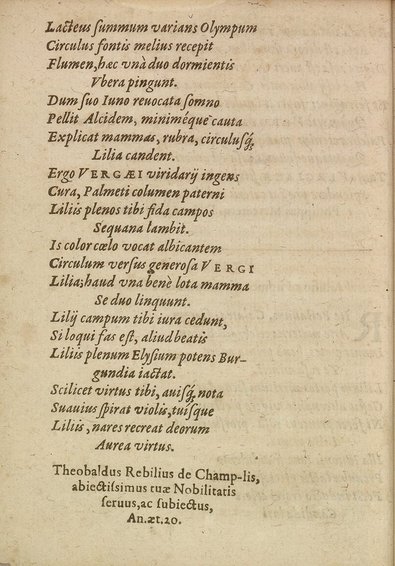 Lacteus summum varians Olympum
Circulus fontis melius recepit
Flumen, hæc vnà duo dormientis
Vbera pingunt.
Dum suo Iuno reuocata somno
Pellit Alcidem, miniméque cauta
Explicat mammas, rubra, circulusq́;
Lilia candent.
Ergo VERGÆI viridarij ingens
Cura, Palmeti columen paterni
Liliis plenos tibi fida campos
Sequana lambit.
Is color cœlo vocat albicantem
Circulum versus generosa VERGI
Lilia; haud vna benè lota mamma
Se duo linquunt.
Lilij campum tibi iura cedunt,
Si loqui fas est, aliud beatis
Liliis plenum Elysium potens Bur-
gundia iactat.
Scilicet virtus tibi, auisq́; nota
Suauius spirat violis, tuisque
Liliis, nares recreat deorum
Aurea virtus.
Theobaldus Rebilius de Champ-lis,
abiectissimus tuæ Nobilitatis
seruus, ac subiectus,
An. æt. 20.